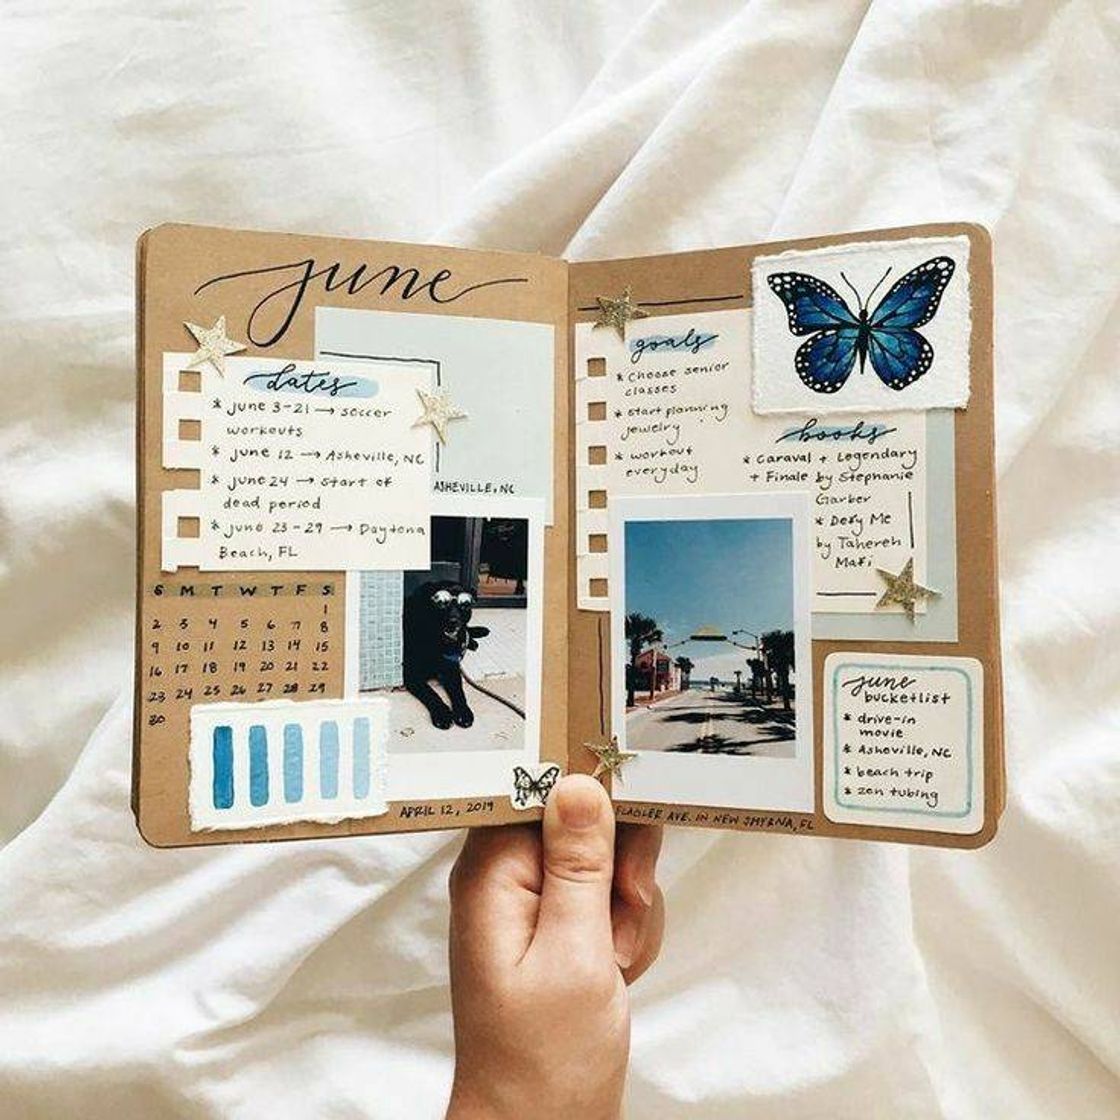 june
dates
* june 3-21 → soccer
workouts
* june 12 → Asheville, NC
* june 24 → start of
dead period
* june 23-29 → Daytona
Beach, FL
ASHEVILLE, NC
S M T W T F S
1
2 3 4 5 6 7 8
9 10 11 12 13 14 15
16 17 18 19 20 21 22
23 24 25 26 27 28 29
30
APRIL 12, 2019
goals
* Choose senior
classes
* start planning
jewelry
* workout
everyday
books
* Caraval + Legendary
+ Finale by Stephanie
Garber
* Defy Me
by Tahereh
Mafi
FLAGLER AVE. IN NEW SMYRNA, FL
june
bucketlist
* drive-in
movie
* Asheville, NC
* beach trip
* zen tubing